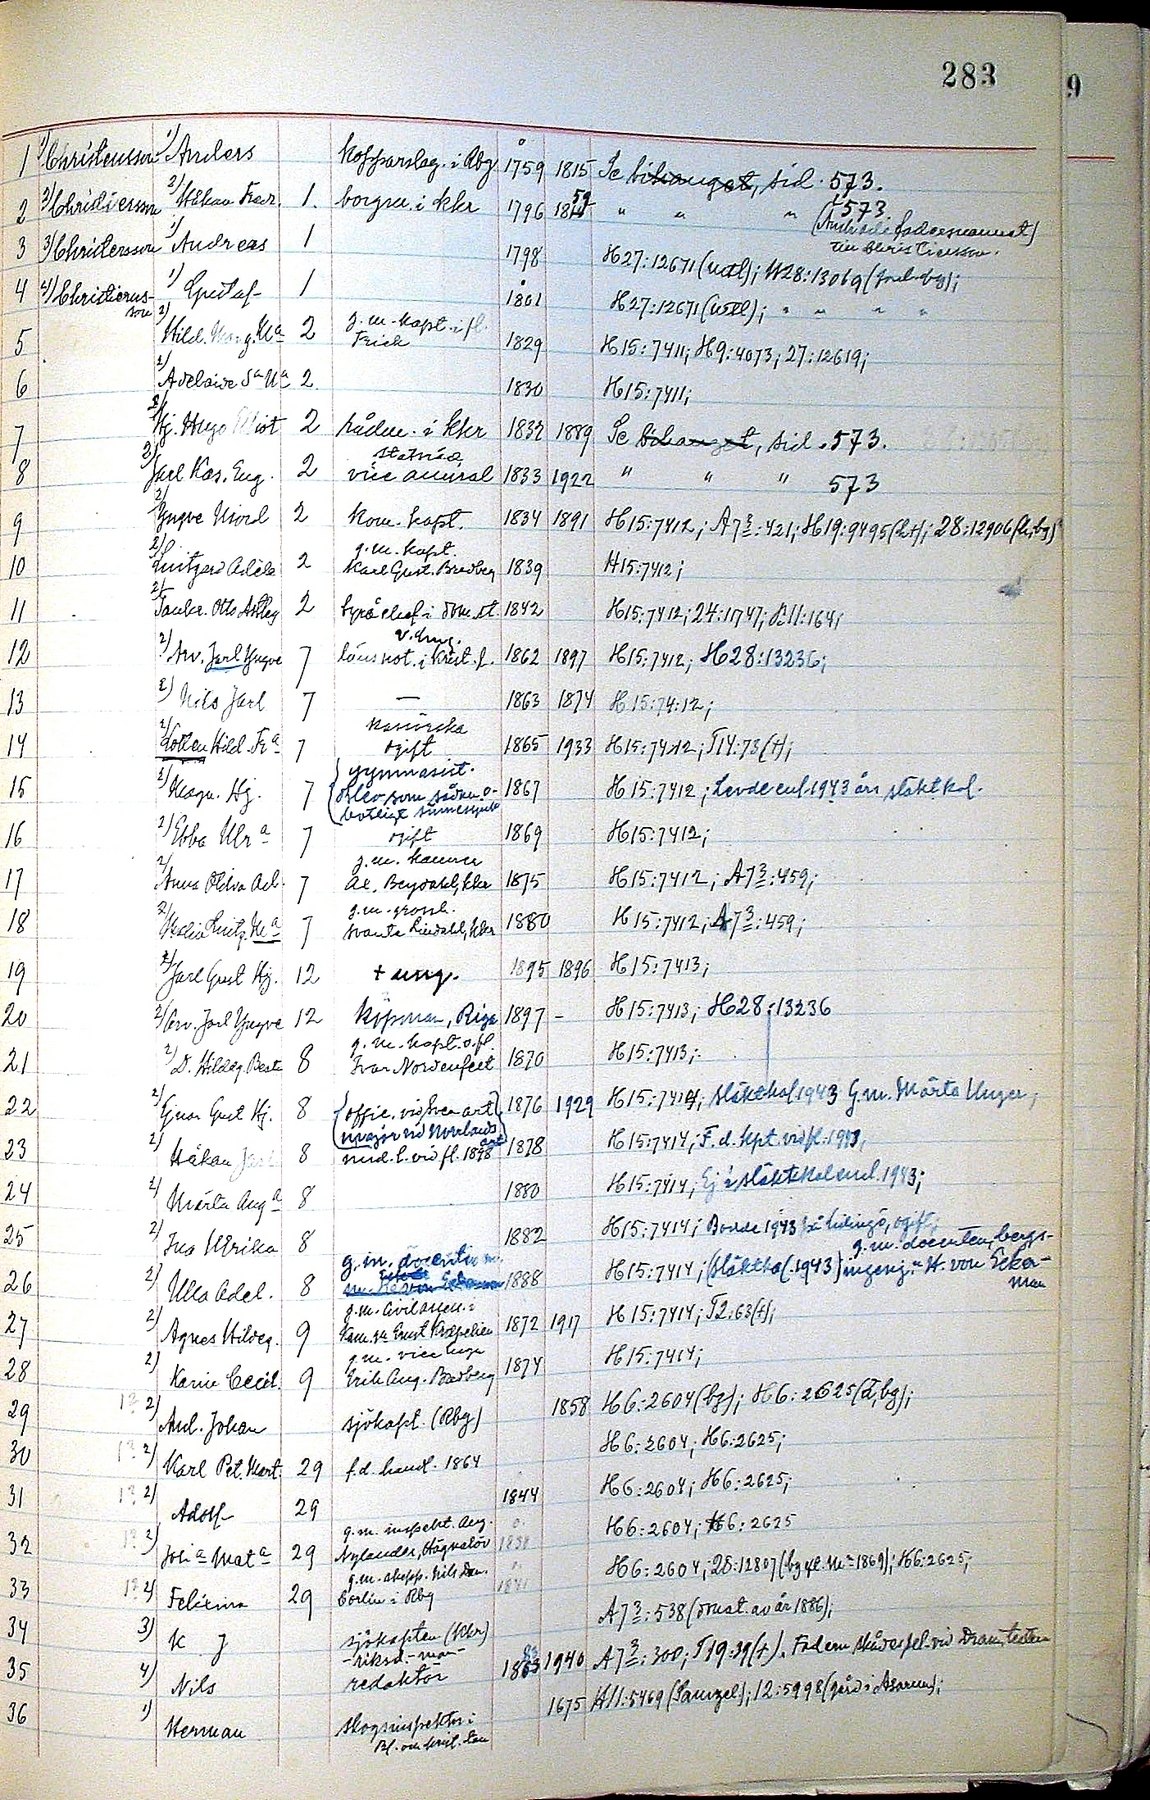 283
9
1 1) Christensson 1) Anders kopparslag. i Rbg 1759 1815 Se bihanget, sid. 573.
2 2) Christiersson 2) Håkan Fredr. 1. borgm. i Khr 1796 18 59 " " " 573.
3 3) Christersson 1) Andreas 1 1798 H27:12671 (utdl); H28:13069
4 4) Christierns- son 1) Gustaf 1 1801 H27:12671 (utdl); " " " "
5 2) Hild. Marg. Ma 2 g.m. kapt. i fl. 1829 H15:7411; H9:4073; 27:12619;
6 2) Adelaide Sa Ua 2. 1830 H15:7411;
7 2) Hj. Hugo Eliot 2 rådm. i Khr 1832 1889 Se bihanget, sid. 573.
8 2) Jarl Kas. Eug. 2 statsråd vice amiral 1833 1922 " " " 573
9 2) Yngve Njord 2 Kom. kapt. 1834 1891 H15:7412; A7 3:421; H19:9495 (h+); 28:12906 (h, bg)
10 2) Adèle 2 g.m. kapt. Karl Gust. Bradberg 1839 H15:7412;
11 2) Tancr. Otto Astley 2 byråchef i dom.st. 1842 H15:7412; 24:11747; 11:164;
12 2) Arv. Jarl Yngve 7 v. häng. länsnot. i Krist. l. 1862 1897 H15:7412; H28:13236;
13 2) Nils Jarl 7 — 1863 1874 H15:74:12;
14 2) Lotten Hild. Fra 7 kassörska ogift 1865 1933 H15:7412; T14:73 (+);
15 2) Magn. Hj. 7 gymnasist. blev som sådan o- botligt sinnessjuk 1867 H15:7412; Levde enl. 1943 års släktkal.
16 2) Ebba Ulra 7 ogift 1869 H15:7412;
17 2) Anna Olivia Ad. 7 g.m. kamrer Al. Bergdahl, Khr 1875 H15:7412; A7 3:459;
18 2) Hedvig Ma 7 g.m. grossh. Svante Lindahl, Khr 1880 H15:7412; A7 3:459;
19 2) Jarl Gust. Hj. 12 + ung. 1895 1896 H15:7413;
20 2) Arv. Jarl Yngve 12 Köpman, Riga 1897 - H15:7413; H28:13236
21 2) D. Hildeg. Beata 8 g.m. kapt. o. fl. Ivar Nordenfelt 1870 H15:7413;
22 2) Gust. Hj. 8 (offic. vid Svea art) (major vid Norrlands art) 1876 1929 H15:7414; släktkal 1943 G.m. Märta Unger;
23 2) Håkan Jarl 8 und. l. vid fl. 1898 1878 H15:7414; F.d. kpt. vid fl. 1943;
24 2) Märta Auga 8 1880 H15:7414; Ej i släktkal enl. 1943;
25 2) Ina Ulrika 8 1882 H15:7414; Bodde 1943 på Lidingö, ogift;
26 2) Ulla Adel. 8 g.m. docenten 1888 H15:7414; (släktkal. 1943) g.m. docenten, bergs- ingenj. H. von Ecker- man
27 2) Agnes Hildeg. 9 g.m. civilassess. i Kam. rä Ernst Kræpelien 1872 1917 H15:7414; T2:63 (+);
28 2) Karin Cecil. 9 g.m. vice Erik Aug. Bradberg 1874 H15:7414;
29 1? 2) And. Johan sjökapt. (Rbg) 1858 H6:2604 (bg); H6:2625 (d, bg);
30 1? 2) Karl Pet. Mart. 29 f.d. handl. 1864 H6:2604; H6:2625;
31 1? 2) Adolf 29 1844 H6:2604; H6:2625;
32 1? 2) Joh.a Mata 29 g.m. inspekt. Aug. Nylander, Hägnalöv H6:2604; H6:2625
33 1? 2) Felixina 29 g.m. skepp. Nils Dan. Borlin i Rbg H6:2604; 28:12807 (bg 1869); H6:2625;
34 3) K J sjökapten (Khr) A7 3:538 (omst. av år 1886);
35 4) Nils riksd.-man redaktör 1863 1940 A7 3:300; T19:39 (+). Fadern skådespel. vid Dram. teatern
36 1) Herman skogsinspektor i Bl. och Krist. län 1675 H11:5469; 12:5998 (gård i Asarum);